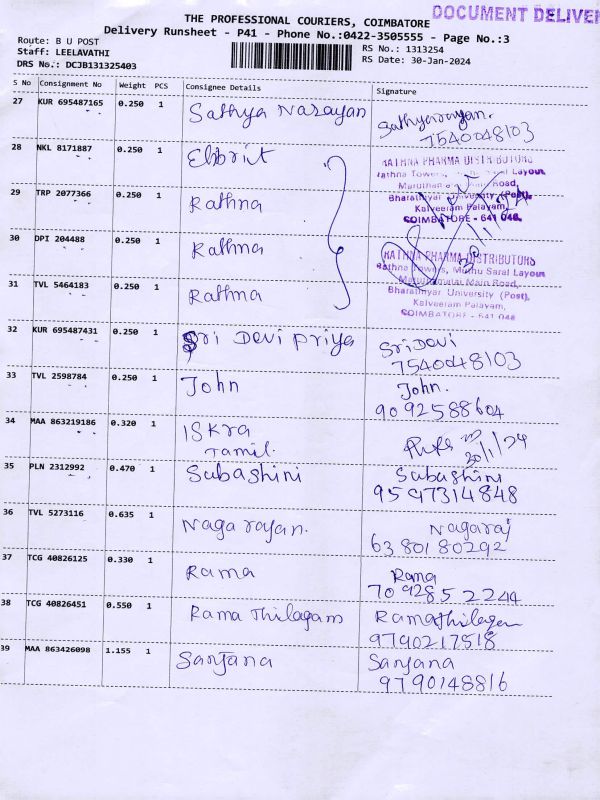 DOCUMENT DELIVER
THE PROFESSIONAL COURIERS, COIMBATORE
Delivery Runsheet - P41 - Phone No.:0422-3505555 - Page No.:3
Route: B U POST
RS No.: 1313254
Staff: LEELAVATHI
RS Date: 30-Jan-2024
DRS No.: DCJB131325403
S No Consignment No Weight PCS Consignee Details Signature
27 KUR 695487165 0.250 1 Sathya Narayan Sathyanarayan.
7540048103
28 NKL 8171887 0.250 1 Ebbrit
RATHNA PHARMA DISTRIBUTORS
Rathna Towers, Saral Layout
Maruthamalai Main Road,
29 TRP 2077366 0.250 1 Rathna
Bharathiyar University (Post),
Kalveeram Palayam,
COIMBATORE - 641 046.
30 DPI 204488 0.250 1 Rathna
RATHNA PHARMA DISTRIBUTORS
Rathna Towers, Muthu Saral Layout
Maruthamalai Main Road,
31 TVL 5464183 0.250 1 Rathna
Bharathiyar University (Post),
Kalveeram Palayam,
COIMBATORE - 641 046
32 KUR 695487431 0.250 1 Sri Devi Priya Sri Devi
7540048103
33 TVL 2598784 0.250 1 John John.
9092588604
34 MAA 863219186 0.320 1 ISKra
Tamil.
20/1/24
35 PLN 2312992 0.470 1 Subashini Subashini
9597314848
36 TVL 5273116 0.635 1 Nagarayan. Nagaraj
6380180292
37 TCG 40826125 0.330 1 Rama Rama
7092852244
38 TCG 40826451 0.550 1 Rama Thilagam Ramathilagam
9790217518
39 MAA 863426098 1.155 1 Sanjana Sanjana
9790148816